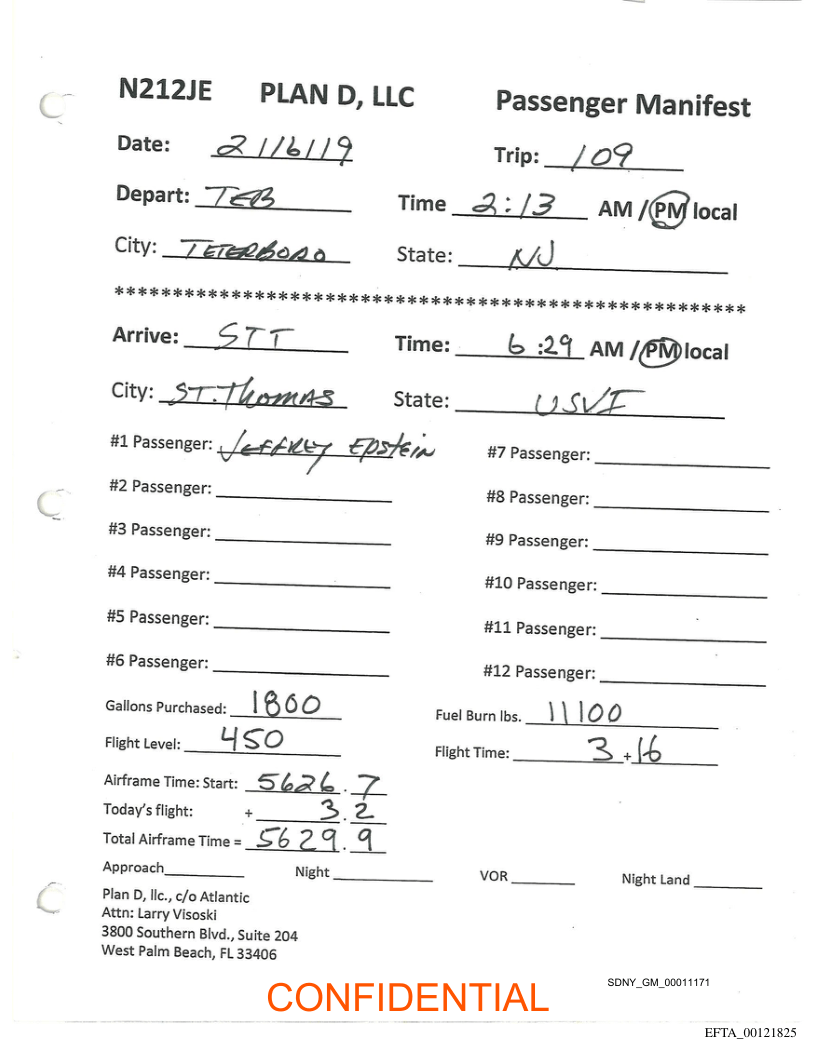 N212JE PLAN D, LLC Passenger Manifest
Date: 2/16/19
Trip: 109
Depart: TEB Time 2:13 AM / PM local
City: TETERBORO State: NJ
******************************************************
Arrive: STT Time: 6:29 AM / PM local
City: ST. Thomas State: USVI
#1 Passenger: Jeffrey Epstein #7 Passenger:
#2 Passenger: #8 Passenger:
#3 Passenger: #9 Passenger:
#4 Passenger: #10 Passenger:
#5 Passenger: #11 Passenger:
#6 Passenger: #12 Passenger:
Gallons Purchased: 1800 Fuel Burn lbs. 11100
Flight Level: 450 Flight Time: 3 + 16
Airframe Time: Start: 5626.7
Today's flight: + 3.2
Total Airframe Time = 5629.9
Approach Night VOR Night Land
Plan D, llc., c/o Atlantic
Attn: Larry Visoski
3800 Southern Blvd., Suite 204
West Palm Beach, FL 33406
SDNY_GM_00011171
CONFIDENTIAL
EFTA_00121825